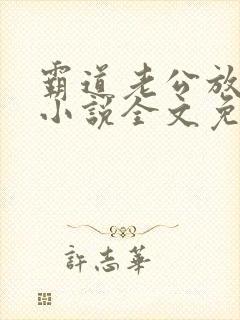 霸道老公放
小说全文免
許志華